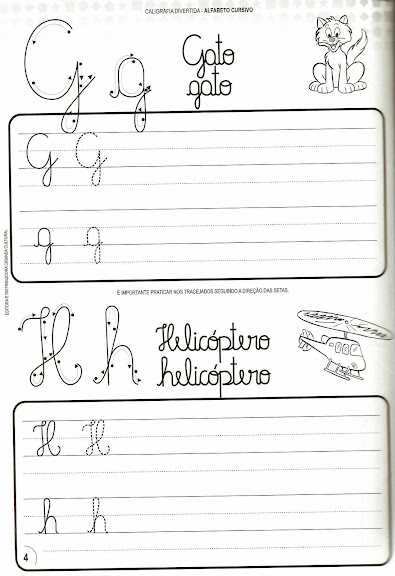 CALIGRAFIA DIVERTIDA - ALFABETO CURSIVO
G g
Gato
gato
G G
g g
EDITORA E DISTRIBUIDORA CIRANDA CULTURAL
É IMPORTANTE PRATICAR NOS TRACEJADOS SEGUINDO A DIREÇÃO DAS SETAS.
H h
Helicóptero
helicóptero
H H
h h
4